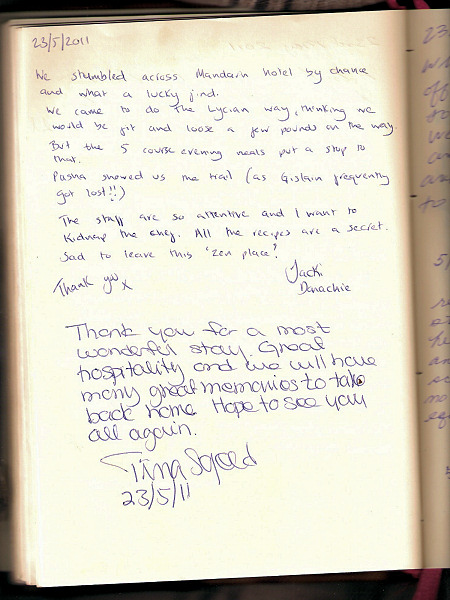 23/5/2011
We stumbled across Mandarin hotel by chance
and what a lucky find.
We came to do the Lycian way, thinking we
would be fit and loose a few pounds on the way.
But the 5 course evening meals put a stop to
that.
Pasha showed us the trail (as Gislain frequently
got lost!!)
The staff are so attentive and I want to
kidnap the chef. All the recipes are a secret.
Sad to leave this 'zen place'!
Thank you x
Jacki
Donachie
Thank you for a most
wonderful stay. Great
hospitality and we will have
many great memories to take
back home. Hope to see you
all again.
Tina
23/5/11